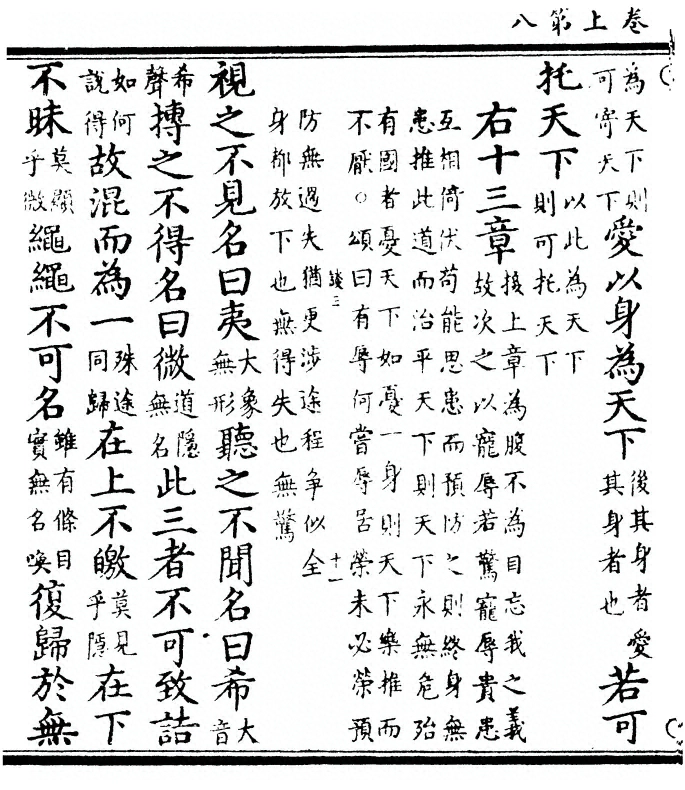 卷上第八
為天下則可寄天下愛以身為天下後其身者愛其身者也若可
托天下以此為天下則可托天下
右十三章接上章為腹不為目忘我之義故次之以寵辱若驚寵辱貴患
互相倚伏苟能思患而預防之則終身無
患推此道而治平天下則天下永無危殆
有國者憂天下如憂一身則天下樂推而
不厭○頌曰有辱何嘗辱居榮未必榮預
三 十一
防無過失猶更涉途程争似全
身都放下也無得失也無驚
視之不見名曰夷大象無形聽之不聞名曰希大音
希聲搏之不得名曰微道隱無名此三者不可致詰
如何說得故混而為一殊途同歸在上不皦莫見乎隱在下
不昧莫顯乎微繩繩不可名雖有條目實無名喚復歸於無